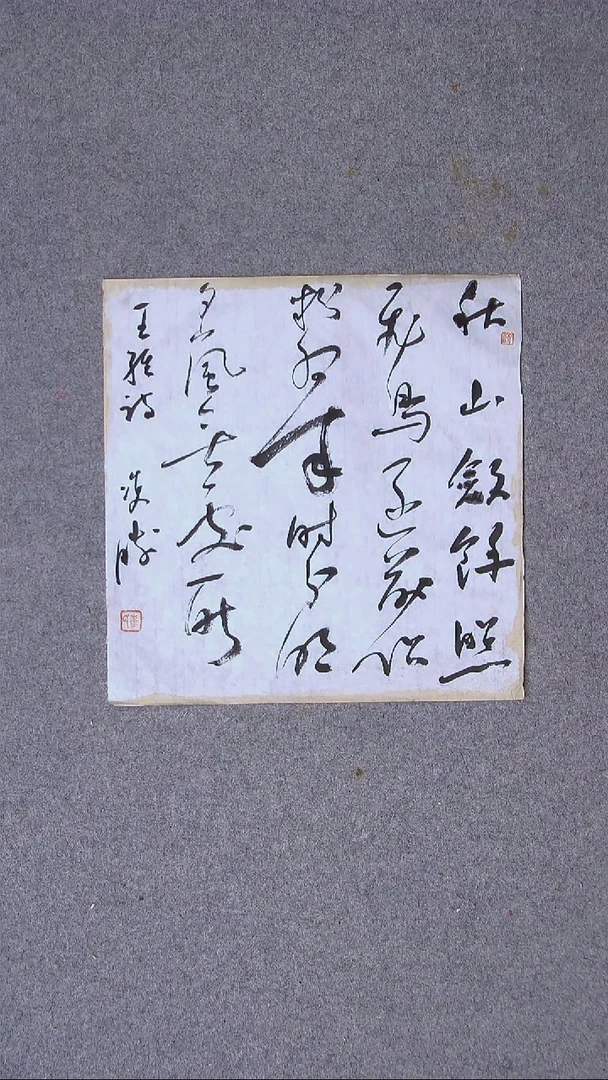 秋山斂餘照
飛鳥逐前侶
彩翠时分明
夕嵐無處所
王維詩